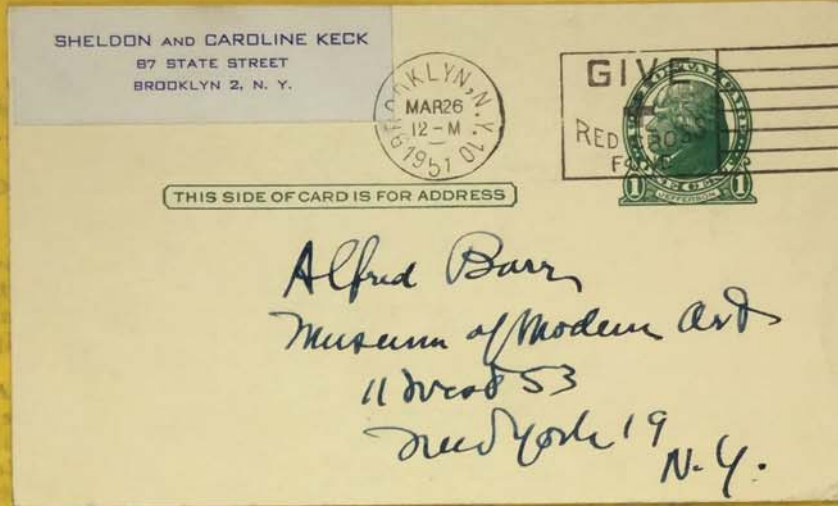 SHELDON AND CAROLINE KECK
87 STATE STREET
BROOKLYN 2, N. Y.
BROOKLYN, N.Y. 10
MAR 26
12-M
1951
GIVE
RED CROSS
FUND
1 JEFFERSON 1
THIS SIDE OF CARD IS FOR ADDRESS
Alfred Barr
Museum of Modern Art
11 West 53
New York 19
N.Y.